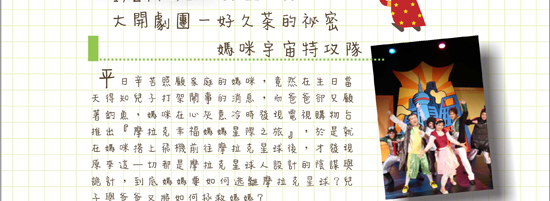 大開劇團－好久茶的祕密
媽咪宇宙特攻隊
平日辛苦照顧家庭的媽咪，竟然在生日當
天得知兒子打架鬧事的消息，而爸爸卻又顧
著釣魚，媽咪在心灰意冷時發現電視購物台
推出『摩拉克幸福媽媽星際之旅』，於是就
在媽咪搭上飛機前往摩拉克星球後，才發現
原來這一切都是摩拉克星球人設計的陰謀與
詭計，到底媽媽要如何逃離摩拉克星球？兒
子與爸爸又將如何拯救媽媽？